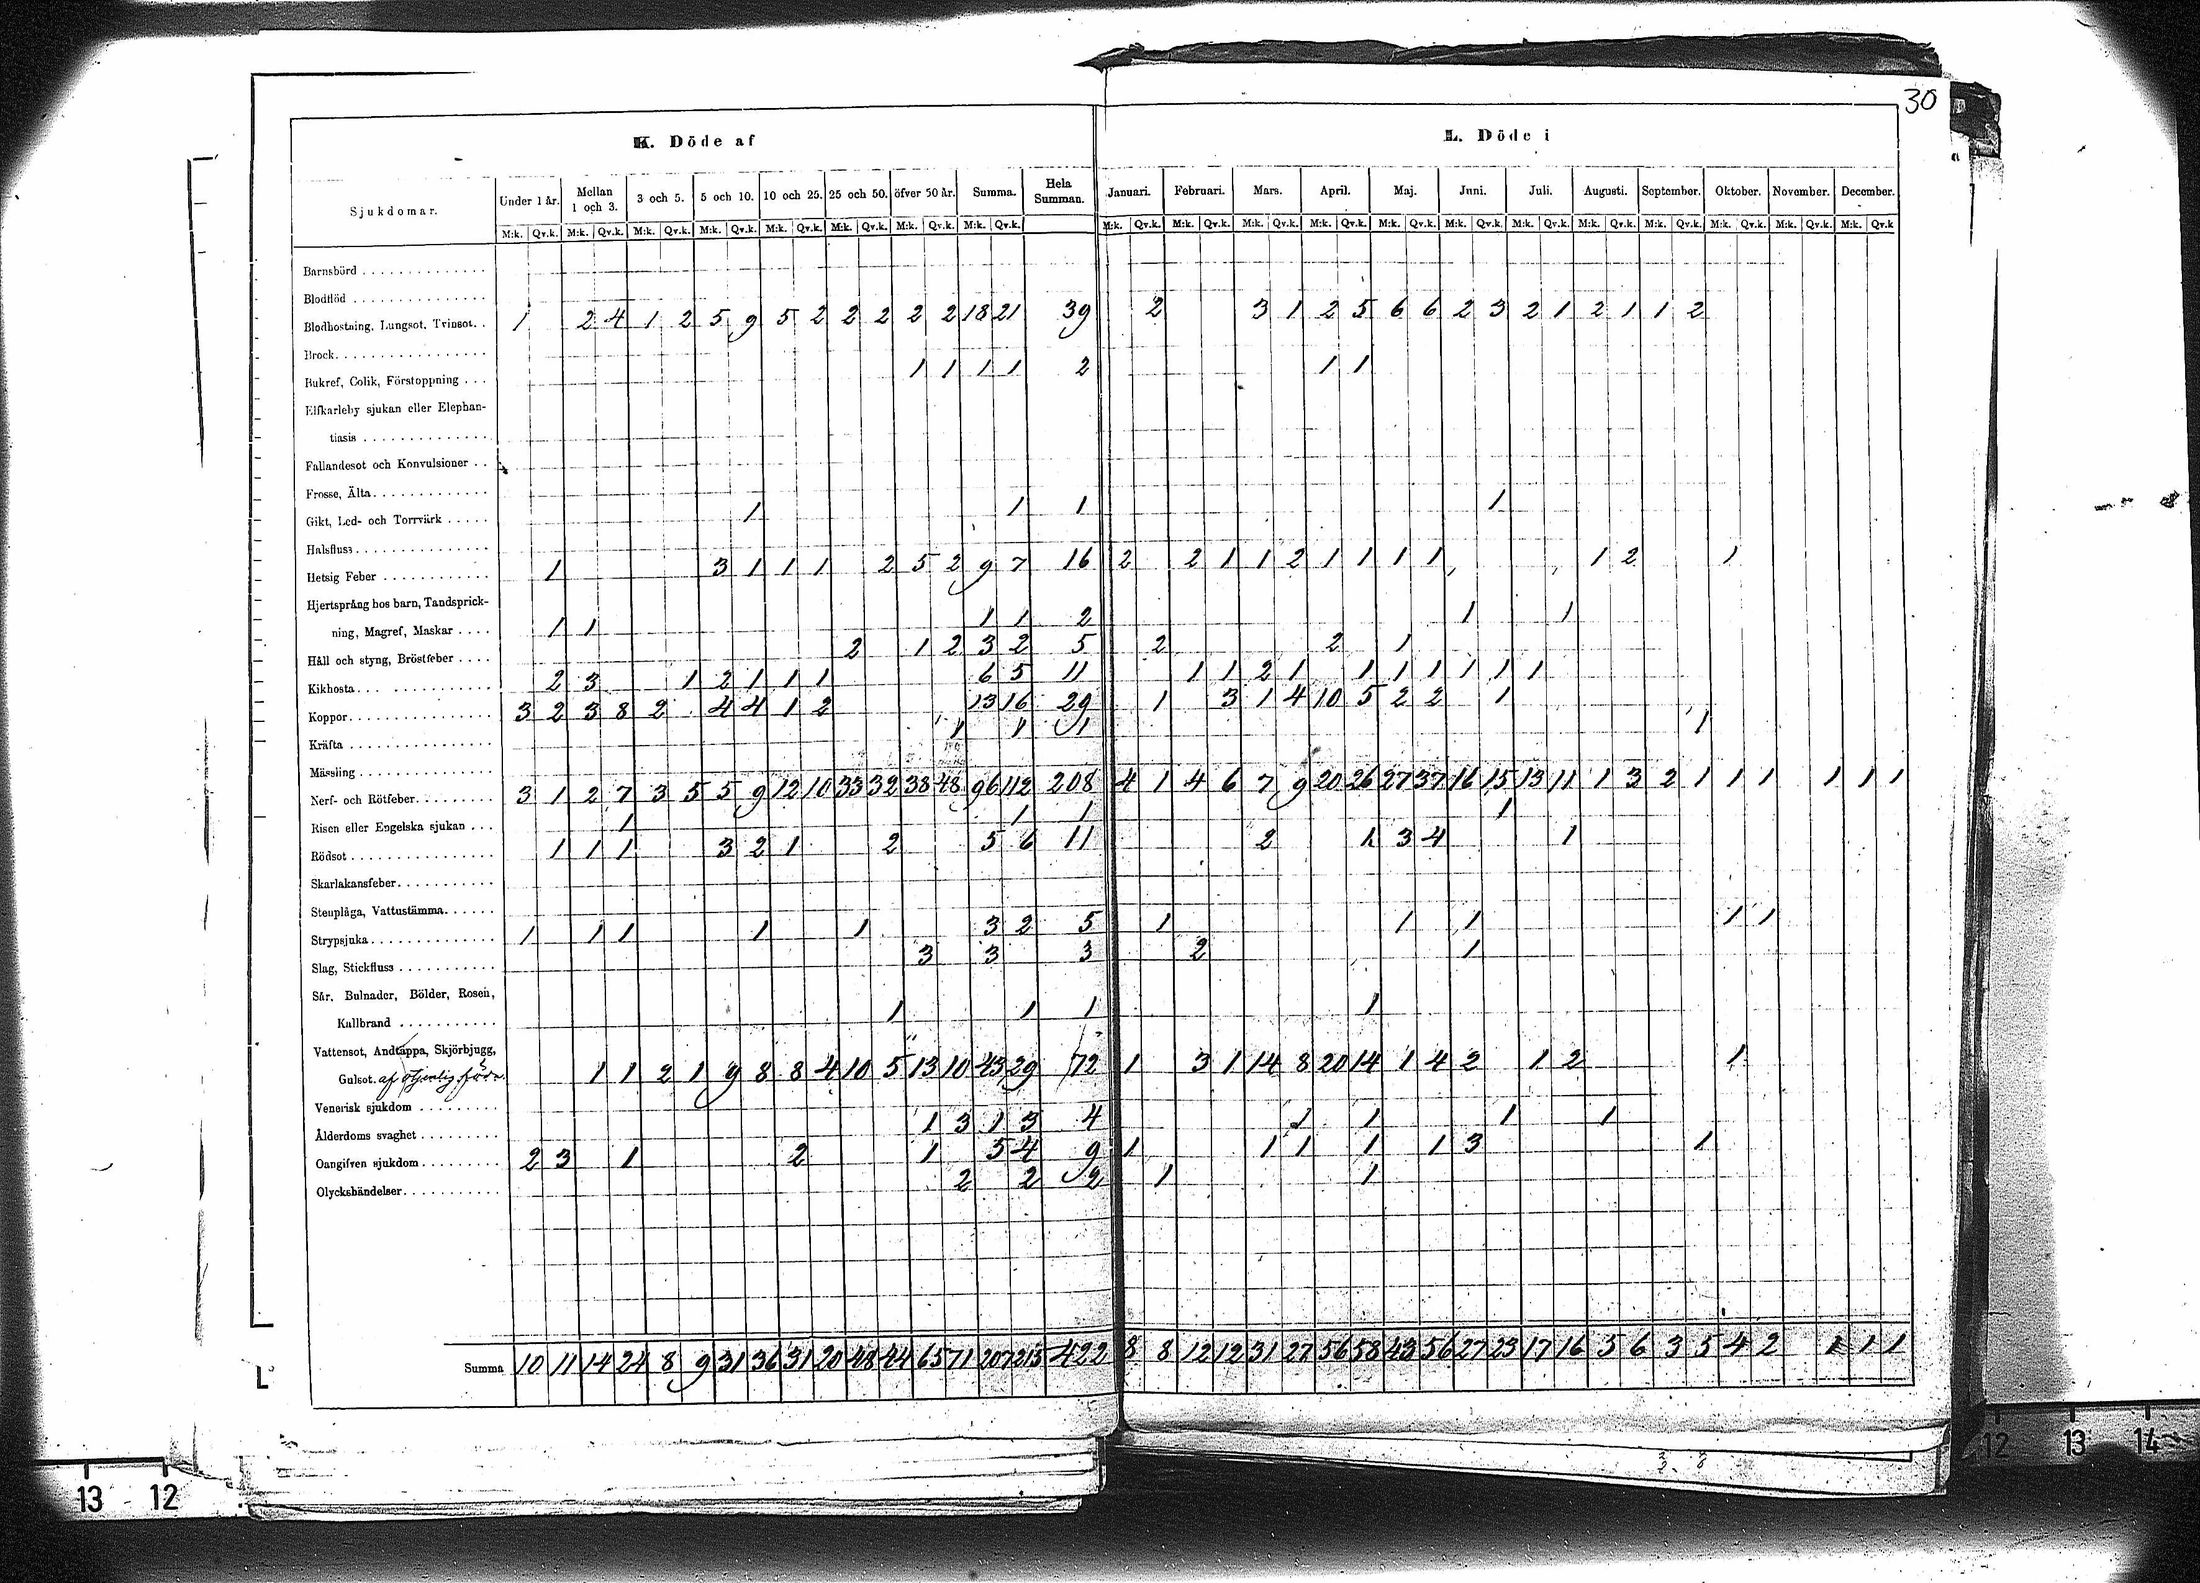 30
K. Döde af
L. Döde i
Sjukdomar. Under 1 år. Mellan 1 och 3. 3 och 5. 5 och 10. 10 och 25. 25 och 50. öfver 50 år. Summa. Hela Summan. Januari. Februari. Mars. April. Maj. Juni. Juli. Augusti. September. Oktober. November. December.
M:k. Qv.k. M:k. Qv.k. M:k. Qv.k. M:k. Qv.k. M:k. Qv.k. M:k. Qv.k. M:k. Qv.k. M:k. Qv.k. M:k. Qv.k. M:k. Qv.k. M:k. Qv.k. M:k. Qv.k. M:k. Qv.k. M:k. Qv.k. M:k. Qv.k. M:k. Qv.k. M:k. Qv.k. M:k. Qv.k. M:k. Qv.k. M:k. Qv.k
Barnsbörd
Blodflöd
Blodhostning, Lungsot, Tvinsot. 1 2 4 1 2 5 9 5 2 2 2 2 2 18 21 39 2 3 1 2 5 6 6 2 3 2 1 2 1 1 2
Brock
Bukref, Colik, Förstoppning 1 1 1 1 2 1 1
Elfkarleby sjukan eller Elephan-
tiasis
Fallandesot och Konvulsioner
Frosse, Älta
Gikt, Led- och Torrvärk 1 1 1 1
Halsfluss
Hetsig Feber 1 3 1 1 1 2 5 2 9 7 16 2 2 1 1 2 1 1 1 1 1 2 1
Hjertsprång hos barn, Tandsprick-
ning, Magref, Maskar 1 1 1 1 2 1 1
Håll och styng, Bröstfeber 2 1 2 3 2 5 2 2 1
Kikhosta 2 3 1 2 1 1 1 6 5 11 1 1 2 1 1 1 1 1 1 1
Koppor 3 2 3 8 2 4 4 1 2 13 16 29 1 3 1 4 10 5 2 2 1
Kräfta 1 1 1 1
Mässling
Nerf- och Rötfeber 3 1 2 7 3 5 5 9 12 10 33 32 38 48 96 112 208 4 1 4 6 7 9 20 26 27 37 16 15 13 11 1 3 2 1 1 1 1 1 1
Risen eller Engelska sjukan 1 1 1 1
Rödsot 1 1 1 3 2 1 2 5 6 11 2 1 3 4 1
Skarlakansfeber
Stenplåga, Vattustämma
Strypsjuka 1 1 1 1 1 3 2 5 1 1 1 1 1
Slag, Stickfluss 3 3 3 2 1
Sår, Bulnader, Bölder, Rosen,
Kallbrand 1 1 1 1
Vattensot, Andtäppa, Skjörbjugg,
Gulsot. af otjenlig föda 1 1 2 1 9 8 8 4 10 5 13 10 43 29 72 1 3 1 14 8 20 14 1 4 2 1 2 1
Venerisk sjukdom
Ålderdoms svaghet 1 3 1 3 4 1 1 1 1
Oangifven sjukdom 2 3 1 2 1 5 4 9 1 1 1 1 1 3 1
Olyckshändelser 2 2 2 1 1
Summa 10 11 14 24 8 9 31 36 31 20 48 44 65 71 207 215 422 8 8 12 12 31 27 56 58 43 56 27 23 17 16 5 6 3 5 4 2 1 1 1
13 12
12 13 14